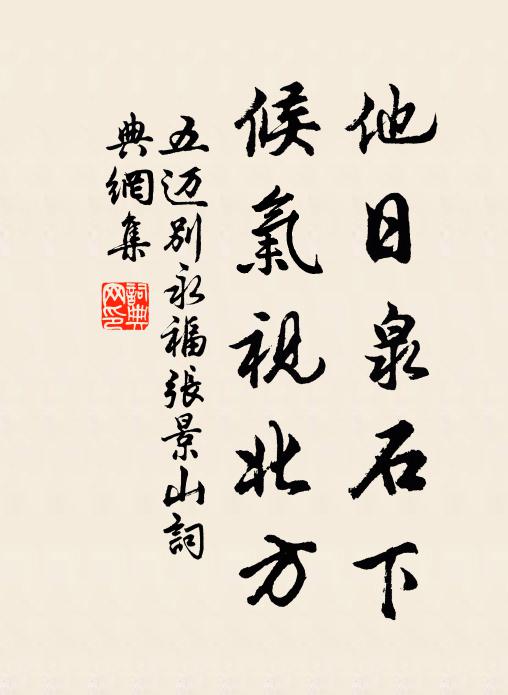 他日泉石下
候氣視北方
五迈別永福張景山詞
典網集
詞典網印